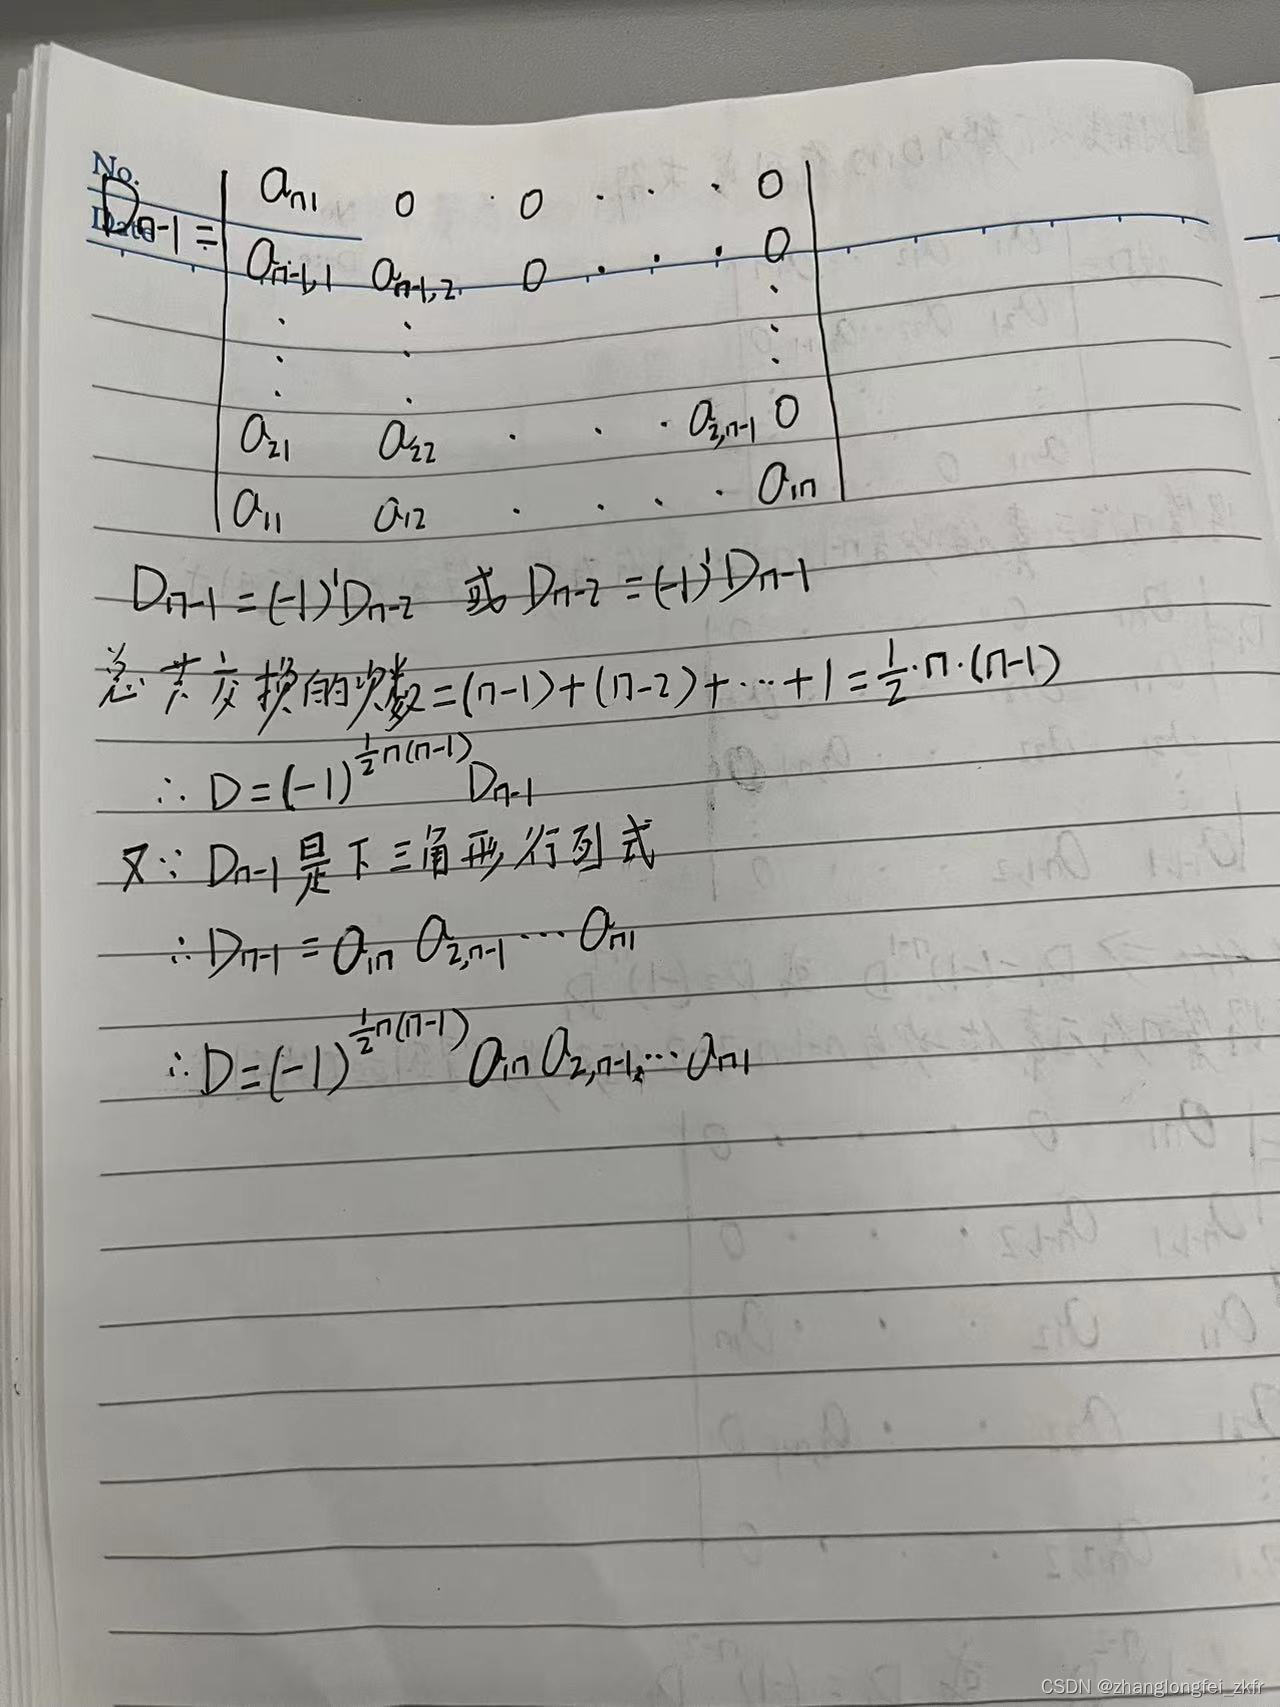 No.
Date
D_{n-1} = | a_{n1} 0 · 0 · · · 0 |
a_{n-1,1} a_{n-1,2} 0 · · · 0
· · ·
· · ·
· · ·
a_{21} a_{22} · · · a_{2,n-1} 0
a_{11} a_{12} · · · · a_{1n}
D_{n-1} = (-1)^1 D_{n-2} 或 D_{n-2} = (-1)^1 D_{n-1}
总共交换的次数=(n-1)+(n-2)+···+1=\frac{1}{2}·n·(n-1)
∴ D=(-1)^{\frac{1}{2}n(n-1)} D_{n-1}
又∵ D_{n-1}是下三角形行列式
∴ D_{n-1} = a_{1n} a_{2,n-1} ··· a_{n1}
∴ D=(-1)^{\frac{1}{2}n(n-1)} a_{1n} a_{2,n-1}, ··· a_{n1}
CSDN @zhanglongfei_zkfr